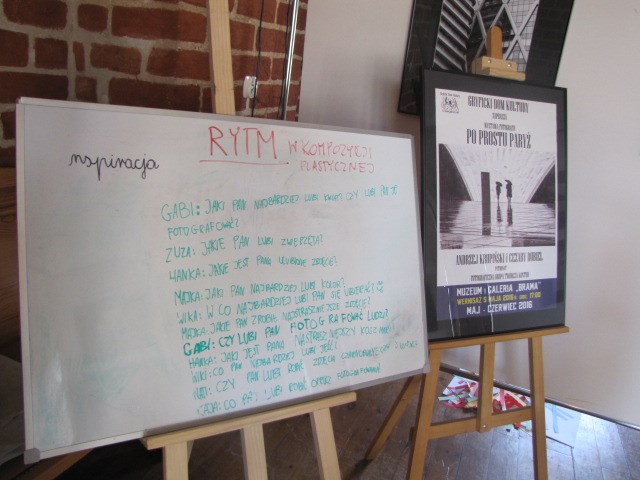 RYTM W KOMPOZYCJI
PLASTYCZNEJ
inspiracja
GABI: JAKI PAN NAJBARDZIEJ LUBI KWIAT CZY LUBI PAN JE
FOTOGRAFOWAĆ?
ZUZA: JAKIE PAN LUBI ZWIERZĘTA?
HANKA: JAKIE JEST PANA ULUBIONE ZDJĘCIE?
MAJKA: JAKI PAN NAJBARDZIEJ LUBI KOLOR?
WIKA: W CO NAJBARDZIEJ LUBI PAN SIĘ UBIERAĆ?
MAJKA: JAKIE PAN ZROBIŁ NAJSTRASZNIEJSZE ZDJĘCIE?
GABI: CZY LUBI PAN FOTOGRAFOWAĆ LUDZI?
HANKA: JAKI JEST PANA NAJSTRASZNIEJSZY KOSZMAR?
WIKI: CO PAN NAJBARDZIEJ LUBI JEŚĆ?
CZY PAN LUBI ROBIĆ ZDJĘCIA
CO PAN LUBI ROBIĆ OPRÓCZ
GRYFICKI DOM KULTURY
ZAPRASZA
WYSTAWA FOTOGRAFII
PO PROSTU PARYŻ
ANDRZEJ KRUPIŃSKI I CEZARY DUBIEL
FOTOGRAFICZNA GRUPA TWORCZA
MUZEUM i GALERIA „BRAMA"
WERNISAŻ 6 MAJA 2016 r. GODZ. 17:00
MAJ - CZERWIEC 2016